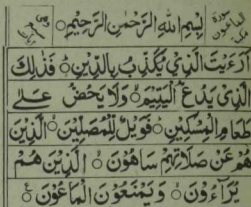 سورة الماعون مكية
بِسْمِ اللهِ الرَّحْمٰنِ الرَّحِيْمِ
اَرَءَيْتَ الَّذِيْ يُكَذِّبُ بِالدِّيْنِ ۝ فَذٰلِكَ
الَّذِيْ يَدُعُّ الْيَتِيْمَ ۝ وَلَا يَحُضُّ عَلٰى
طَعَامِ الْمِسْكِيْنِ ۝ فَوَيْلٌ لِّلْمُصَلِّيْنَ ۝ الَّذِيْنَ
هُمْ عَنْ صَلَاتِهِمْ سَاهُوْنَ ۝ الَّذِيْنَ هُمْ
يُرَآءُوْنَ ۝ وَيَمْنَعُوْنَ الْمَاعُوْنَ ۝